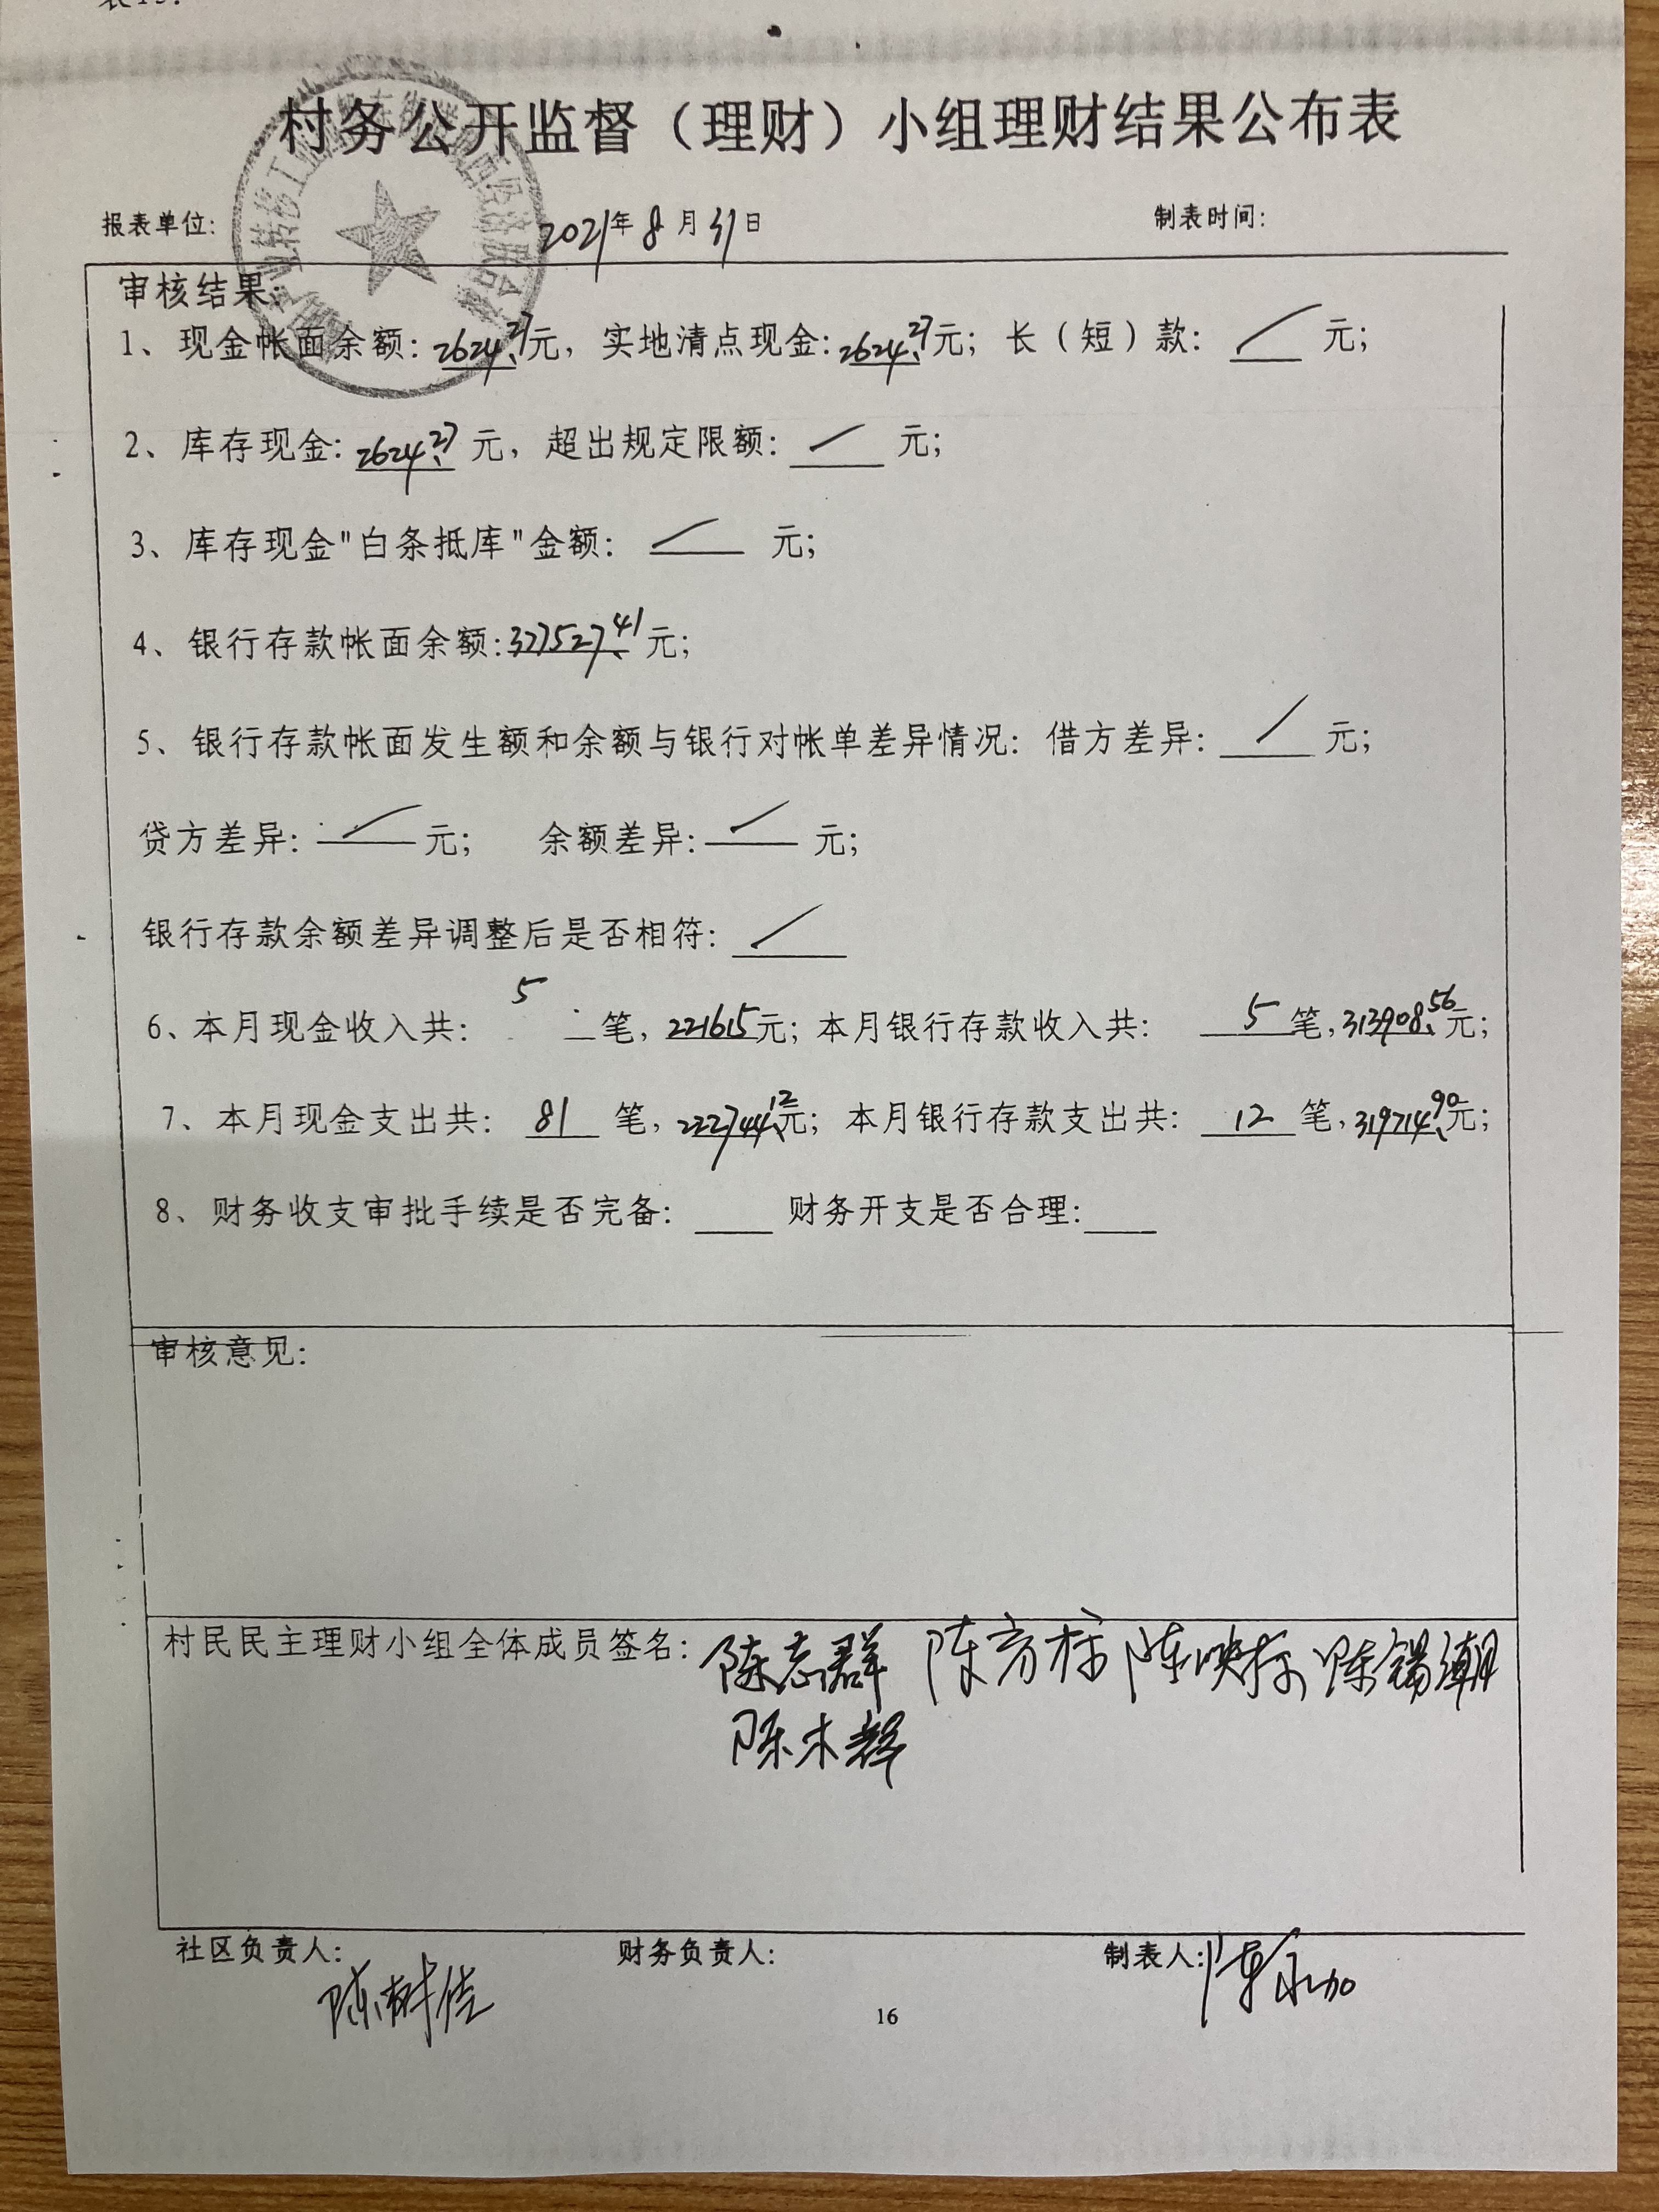 村务公开监督（理财）小组理财结果公布表
报表单位: 2021年8月31日 制表时间:
审核结果:
1、现金帐面余额: 2624.27元, 实地清点现金: 2624.27元; 长（短）款: / 元;
2、库存现金: 2624.27 元, 超出规定限额: / 元;
3、库存现金"白条抵库"金额: / 元;
4、银行存款帐面余额: 327527.41元;
5、银行存款帐面发生额和余额与银行对帐单差异情况: 借方差异: / 元;
贷方差异: / 元; 余额差异: / 元;
银行存款余额差异调整后是否相符: /
6、本月现金收入共: 5 笔, 221615元; 本月银行存款收入共: 5 笔, 313908.56元;
7、本月现金支出共: 81 笔, 222744.12元; 本月银行存款支出共: 12 笔, 319714.90元;
8、财务收支审批手续是否完备: 财务开支是否合理:
审核意见:
村民民主理财小组全体成员签名: 陈志群 陈 陈映标 陈锡潮
陈木辉
社区负责人: 财务负责人: 制表人:
陈树佳 陈永加
16